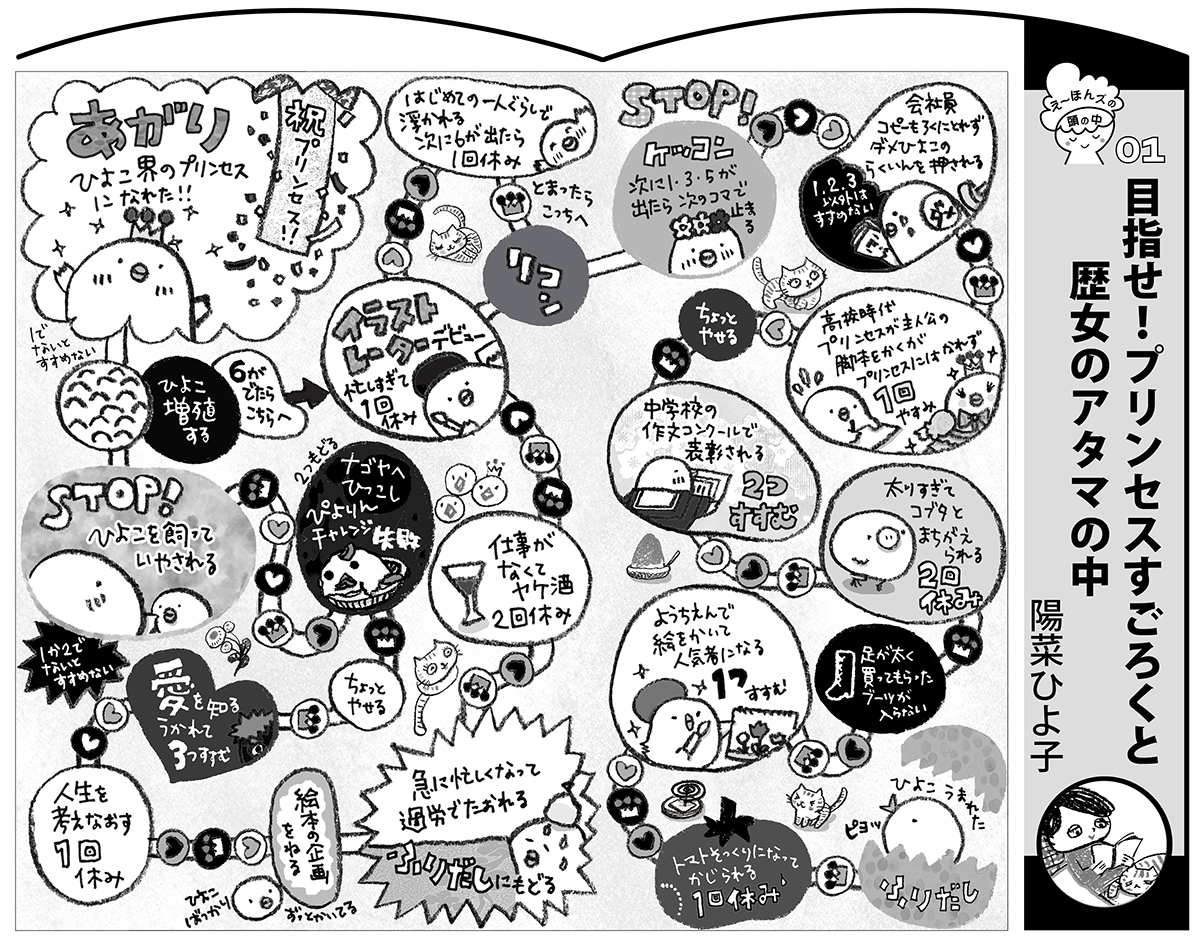 え〜ほんズの
頭の中
01
目指せ!プリンセスすごろくと
歴女のアタマの中
陽菜ひよ子
ひよこ うまれた
ピヨッ
ふりだし
トマトそっくりになって
かじられる
1回休み
ようちえんで
絵をかいて
人気者になる
1つ
すすむ
足が太く
買ってもらった
ブーツが
入らない
太りすぎて
コブタと
まちがえ
られる
2回
休み
中学校の
作文コンクールで
表彰される
2つ
すすむ
ちょっと
やせる
高校時代
プリンセスが主人公の
脚本をかくが
プリンセスにはなれず
1回
やすみ
会社員
コピーもろくにとれず
ダメひよこの
らくいんを押される
ダメ
1.2.3
以外は
すすめない
STOP!
ケッコン
次に1・3・5が
出たら次のコマで
止まる
リコン
とまったら
こっちへ
はじめての一人ぐらしで
浮かれる
次に6が出たら
1回休み
イラスト
レーターデビュー
忙しすぎて
1回
休み
仕事が
なくて
ヤケ酒
2回休み
急に忙しくなって
過労でたおれる
ふりだしにもどる
絵本の企画
をねる
ひよこ
ばっかり
ずっとかいてる
人生を
考えなおす
1回
休み
愛を知る
うかれて
3つすすむ
1か2で
ないと
すすめない
ちょっと
やせる
ナゴヤへ
ひっこし
ぴよりん
チャレンジ失敗
2つもどる
STOP!
ひよこを飼って
いやされる
ひよこ
増殖
する
6が
でたら
こちらへ
1で
ないと
すすめない
あがり
ひよこ界のプリンセス
になれた!!
祝プリンセス!!